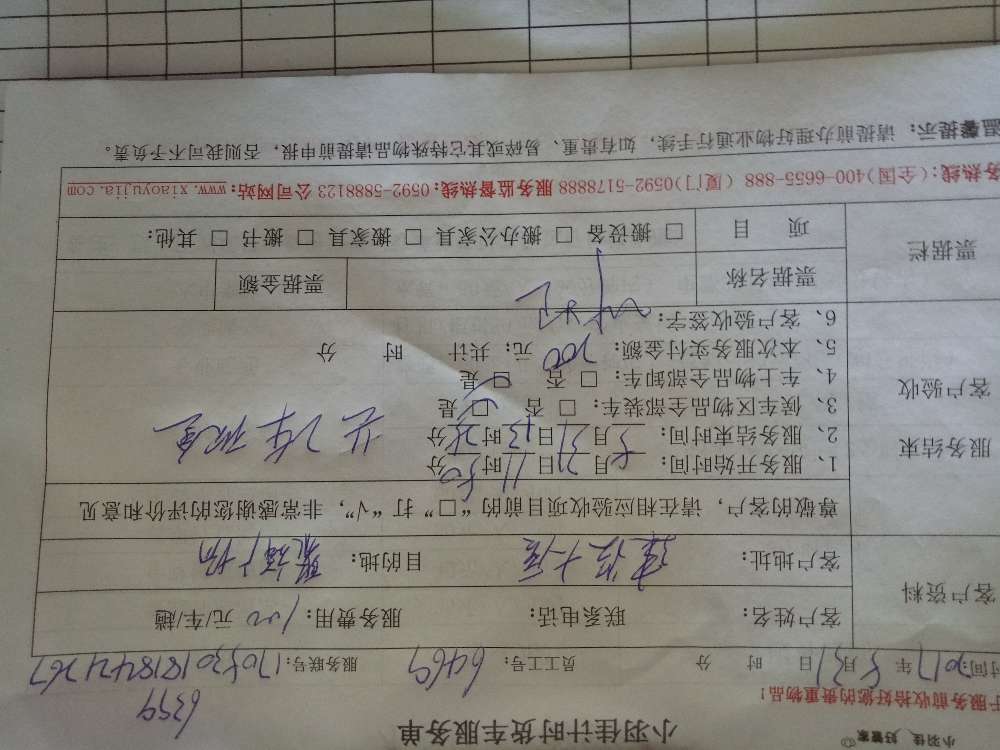 小羽佳 好管家
小羽佳计时货车服务单
6359
于服务前收拾好您的贵重物品!
时间: 2017 年 5 月 31 日 时 分 员工工号: 6469 服务联号:
客户资料
客户姓名: 联系电话: 服务费用: 100 元/车/趟
客户地址: 目的地:
尊敬的客户,请在相应验收项目前的“□”打“√”,非常感谢您的评价和意见
服务结束
客户验收
1、服务开始时间: 5 月 31 日 11 时 50 分
2、服务结束时间: 5 月 31 日 13 时 分
3、候车区物品全部装车: □ 否 □ 是
4、车上物品全部卸车: □ 否 □ 是
5、本次服务实付金额: 200 元; 共计 时 分
6、客户验收签字:
票据栏
票据名称 票据金额
项 目 □ 搬设备 □ 搬办公家具 □ 搬家具 □ 搬书 □ 其他:
务热线:(全国)400-6655-888 (厦门)0592-5178888 服务监督热线:0592-5888123 公司网站:www.xiaoyujia.com
温馨提示: 请提前办理好物业通行手续, 如有贵重、易碎或其它特殊物品请提前申报, 否则我司不予负责。